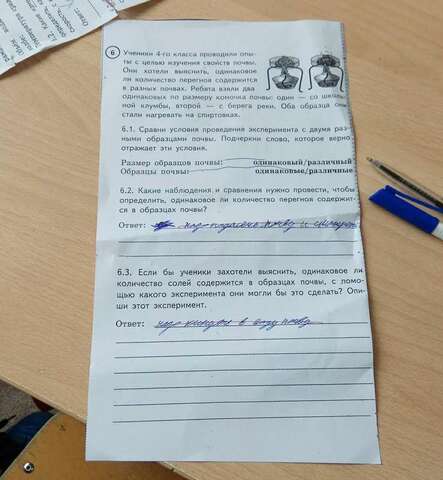 6 Ученики 4-го класса проводили опы-
ты с целью изучения свойств почвы.
Они хотели выяснить, одинаковое
ли количество перегноя содержится
в разных почвах. Ребята взяли два
одинаковых по размеру комочка почвы: один — со школь
ной клумбы, второй — с берега реки. Оба образца они
стали нагревать на спиртовках.
6.1. Сравни условия проведения эксперимента с двумя раз-
ными образцами почвы. Подчеркни слово, которое верно
отражает эти условия.
Размер образцов почвы: одинаковый/различный
Образцы почвы: одинаковые/различные
6.2. Какие наблюдения и сравнения нужно провести, чтобы
определить, одинаковое ли количество перегноя содержит-
ся в образцах почвы?
Ответ: почву и
6.3. Если бы ученики захотели выяснить, одинаковое ли
количество солей содержится в образцах почвы, с помо-
щью какого эксперимента они могли бы это сделать? Опи-
ши этот эксперимент.
Ответ: надо кинуть в воду почву